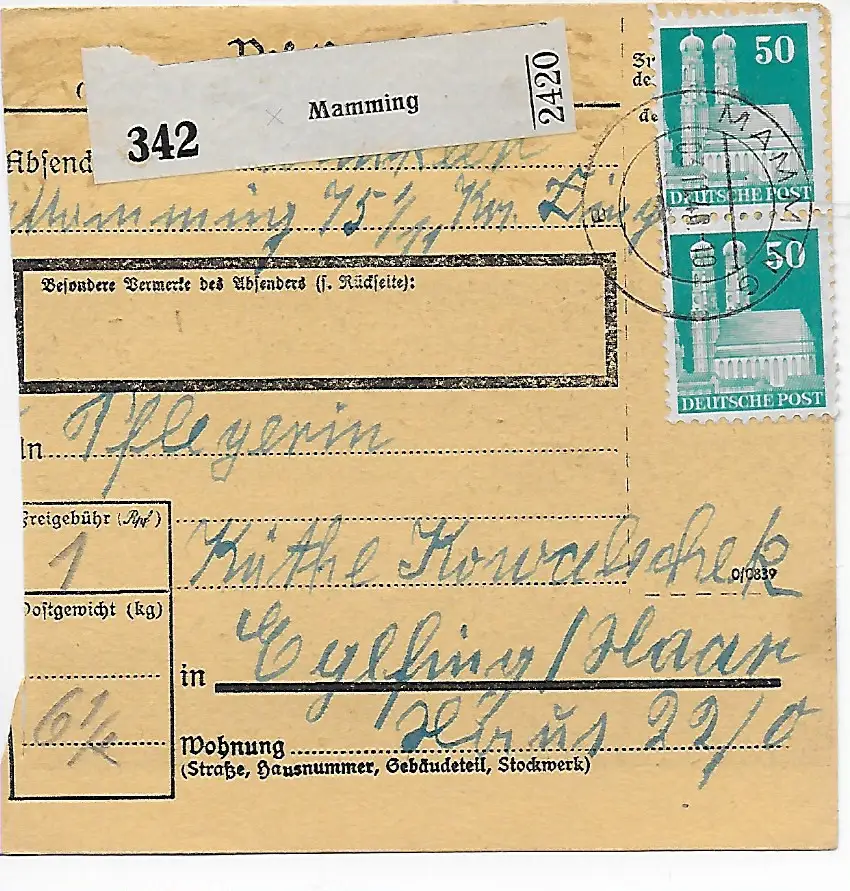 342 Mamming 2420
Absend
Mamming 75 1/11 Kr. Ding
Besondere Vermerke des Absenders (s. Rückseite):
50
DEUTSCHE POST
50
DEUTSCHE POST
MAMMING
In Pflegerin
Freigebühr (Rpf)
1
Käthe Kowalschek
0/0839
Postgewicht (kg)
6 1/2
in Eglfing/Haar
Haus 22/0
Wohnung
(Straße, Hausnummer, Gebäudeteil, Stockwerk)